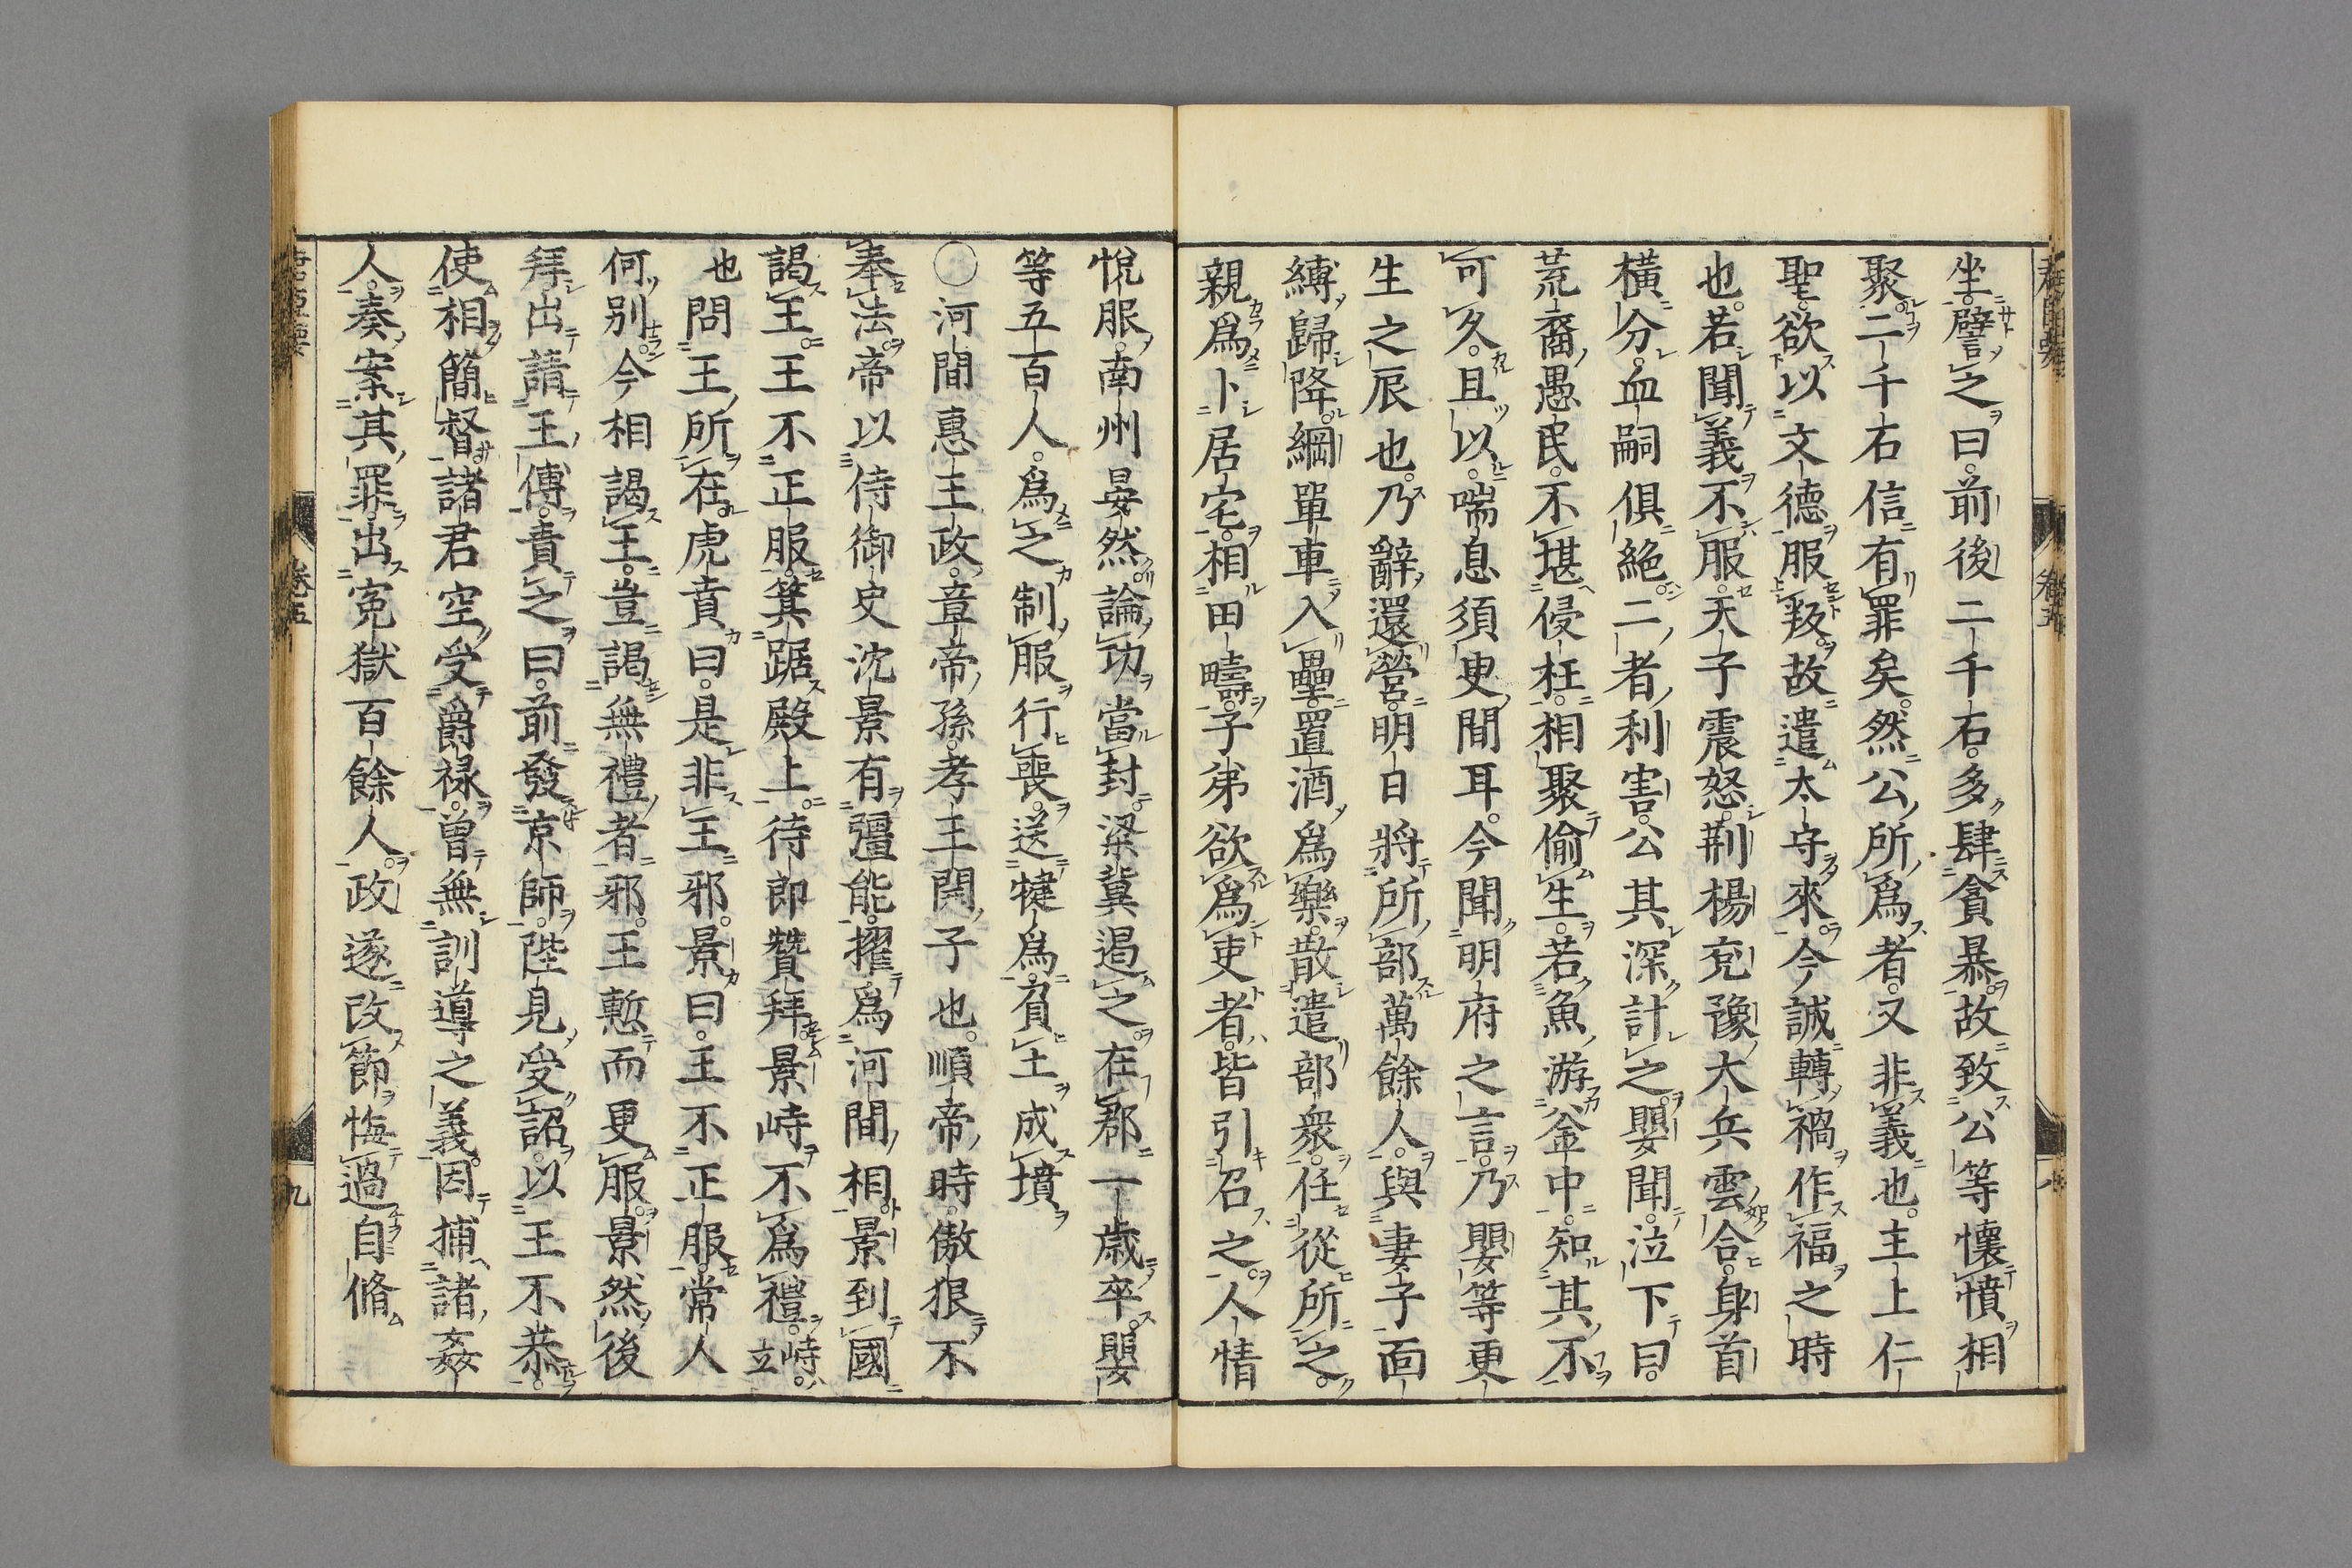 坐譬之曰前後二千石多肆貪暴故致公等懷憤相
聚二千石信有罪矣然公所爲者又非義也主上仁
聖欲以文德服叛故遣太守來今誠轉禍作福之時
也若聞義不服天子震怒荆楊兖豫大兵雲合身首
橫分血嗣俱絶二者利害公其深計之嬰聞泣下曰
荒裔愚民不堪侵枉相聚偷生若魚游釡中知其不
可久且以喘息須臾間耳今聞明府之言乃嬰等更
生之辰也乃辭還營明日將所部萬餘人與妻子面
縛歸降綱單車入壘置酒爲樂散遣部衆任從所之
親爲卜居宅相田疇子弟欲爲吏者皆引召之人情
悅服南州晏然論功當封梁冀遏之在郡一歲卒嬰
等五百人爲之制服行喪送犍爲負土成墳
○河間惠王政章帝孫孝王開子也順帝時傲狠不
奉法帝以侍御史沈景有彊能擢爲河間相景到國
謁王王不正服箕踞殿上侍郎贊拜景峙不爲禮峙立
也問王所在虎賁曰是非王邪景曰王不正服常人
何別今相謁王豈謁無禮者邪王慙而更服景然後
拜出請王傅責之曰前發京師陛見受詔以王不恭
使相簡督諸君空受爵祿曾無訓導之義因捕諸姦
人奏案其罪出冤獄百餘人政遂改節悔過自脩
卷五
九
卷五